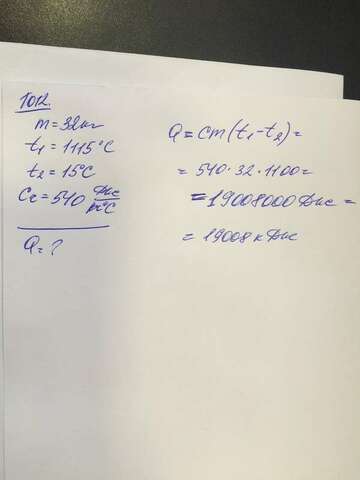 1012.
m=32кг
t₁=1115°C
t₂=15°C
Cc=540 Дж/кг°C
Q=?
Q=cm(t₁-t₂)=
=540·32·1100=
=19008000Дж=
=19008кДж